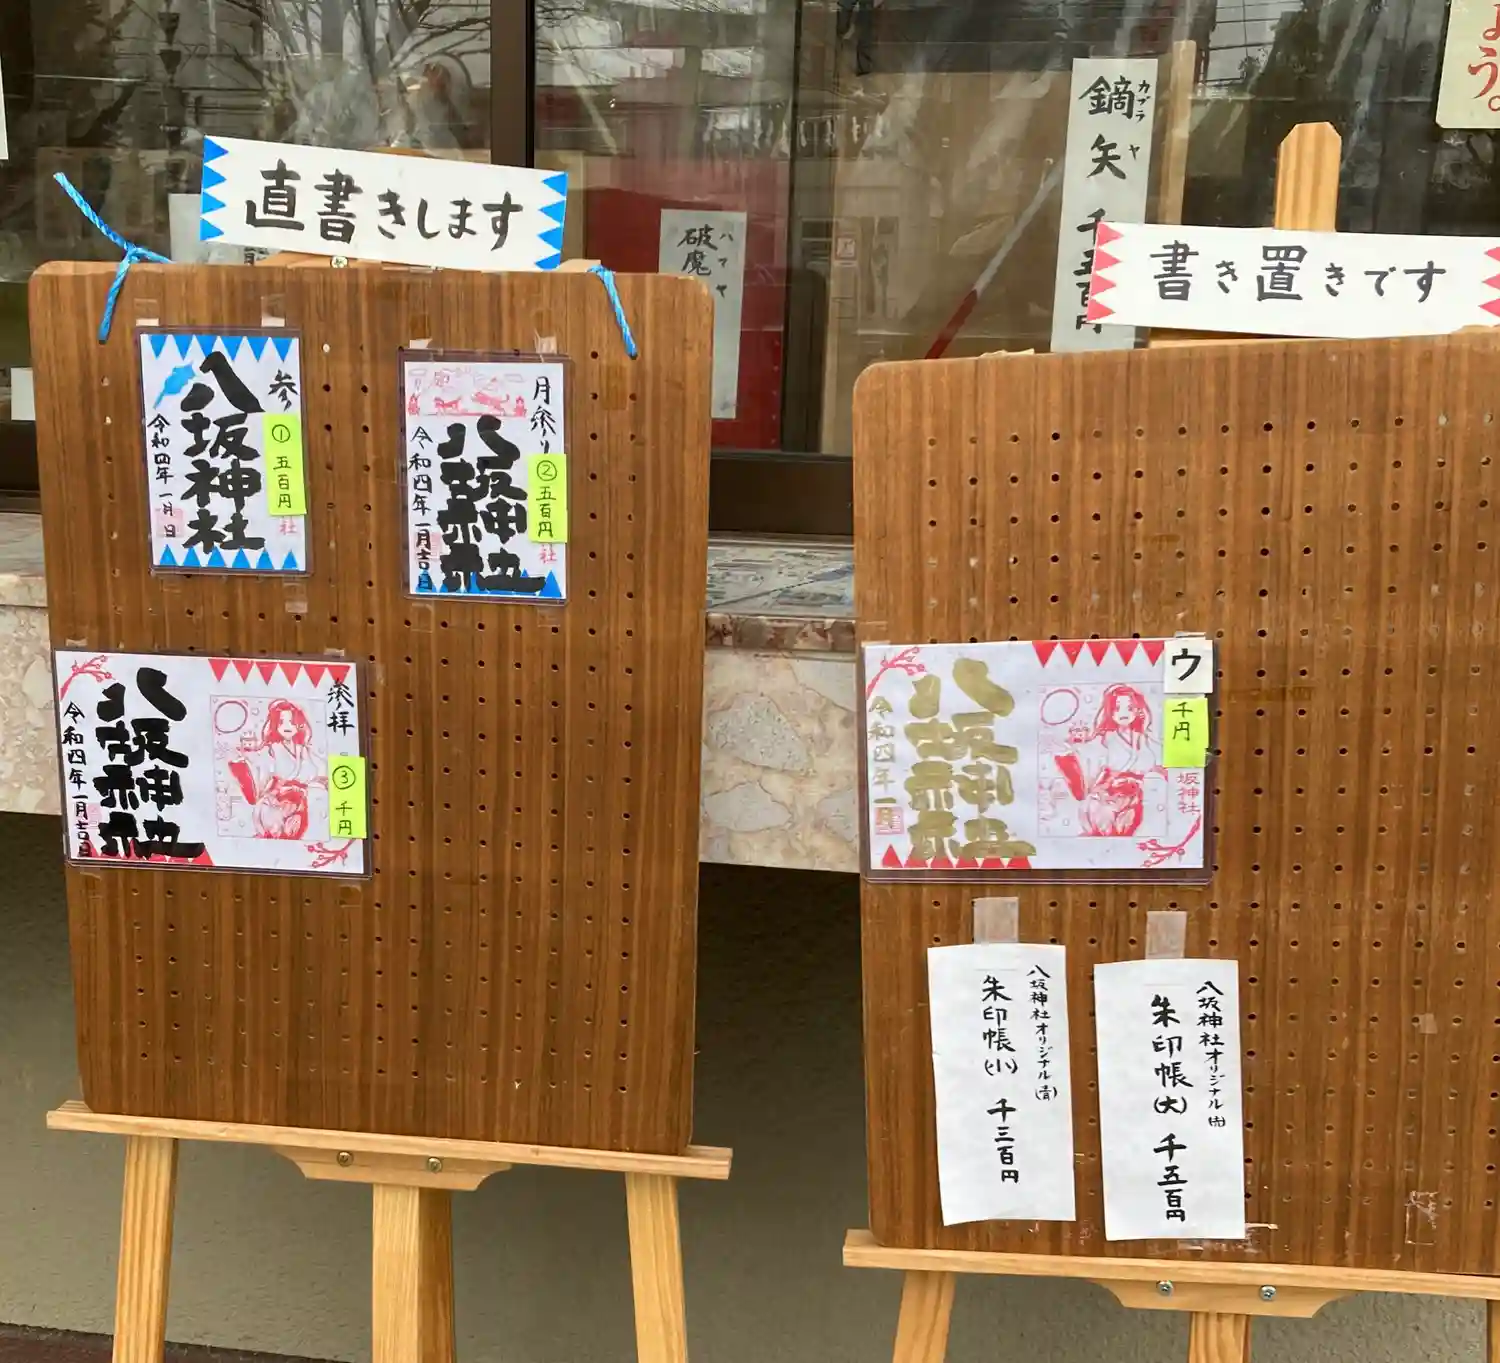 直書きします
八坂神社
参
① 五百円
令和四年 一月 日
社
月参り
② 五百円
八坂神社
令和四年 一月吉日
社
参拝
③ 千円
八坂神社
令和四年 一月吉日
破魔
ハマヤ
鏑矢 千五百円
カブラヤ
よ
う。
書き置きです
ウ
千円
坂神社
八坂神社
令和四年 一月
八坂神社オリジナル(青)
朱印帳(小) 千三百円
八坂神社オリジナル
朱印帳(大) 千五百円